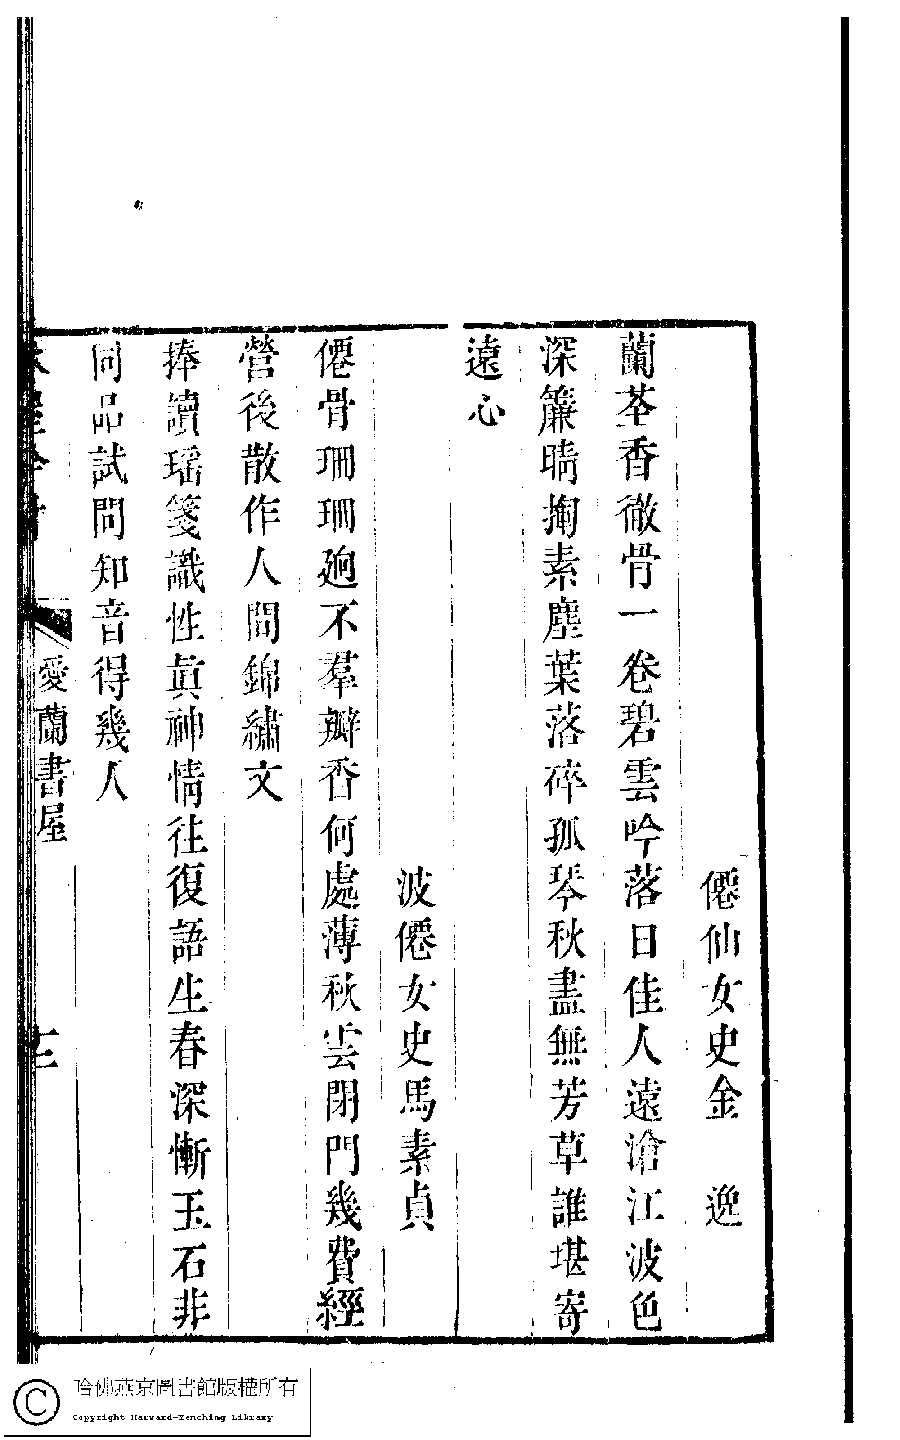 僊仙女史金　逸
蘭荃香徹骨一卷碧雲吟落日佳人遠滄江波色
深簾晴搊素塵葉落碎孤琴秋盡無芳草誰堪寄
遠心
波僊女史馬素貞
僊骨珊珊逈不羣瓣香何處薄秋雲閉門幾費經
營後散作人間錦繡文
捧讀瑶箋識性眞神情往復語生春深慚玉石非
同品試問知音得幾人
愛蘭書屋
十二
哈佛燕京圖書館版權所有
Copyright Harvard-Yenching Library